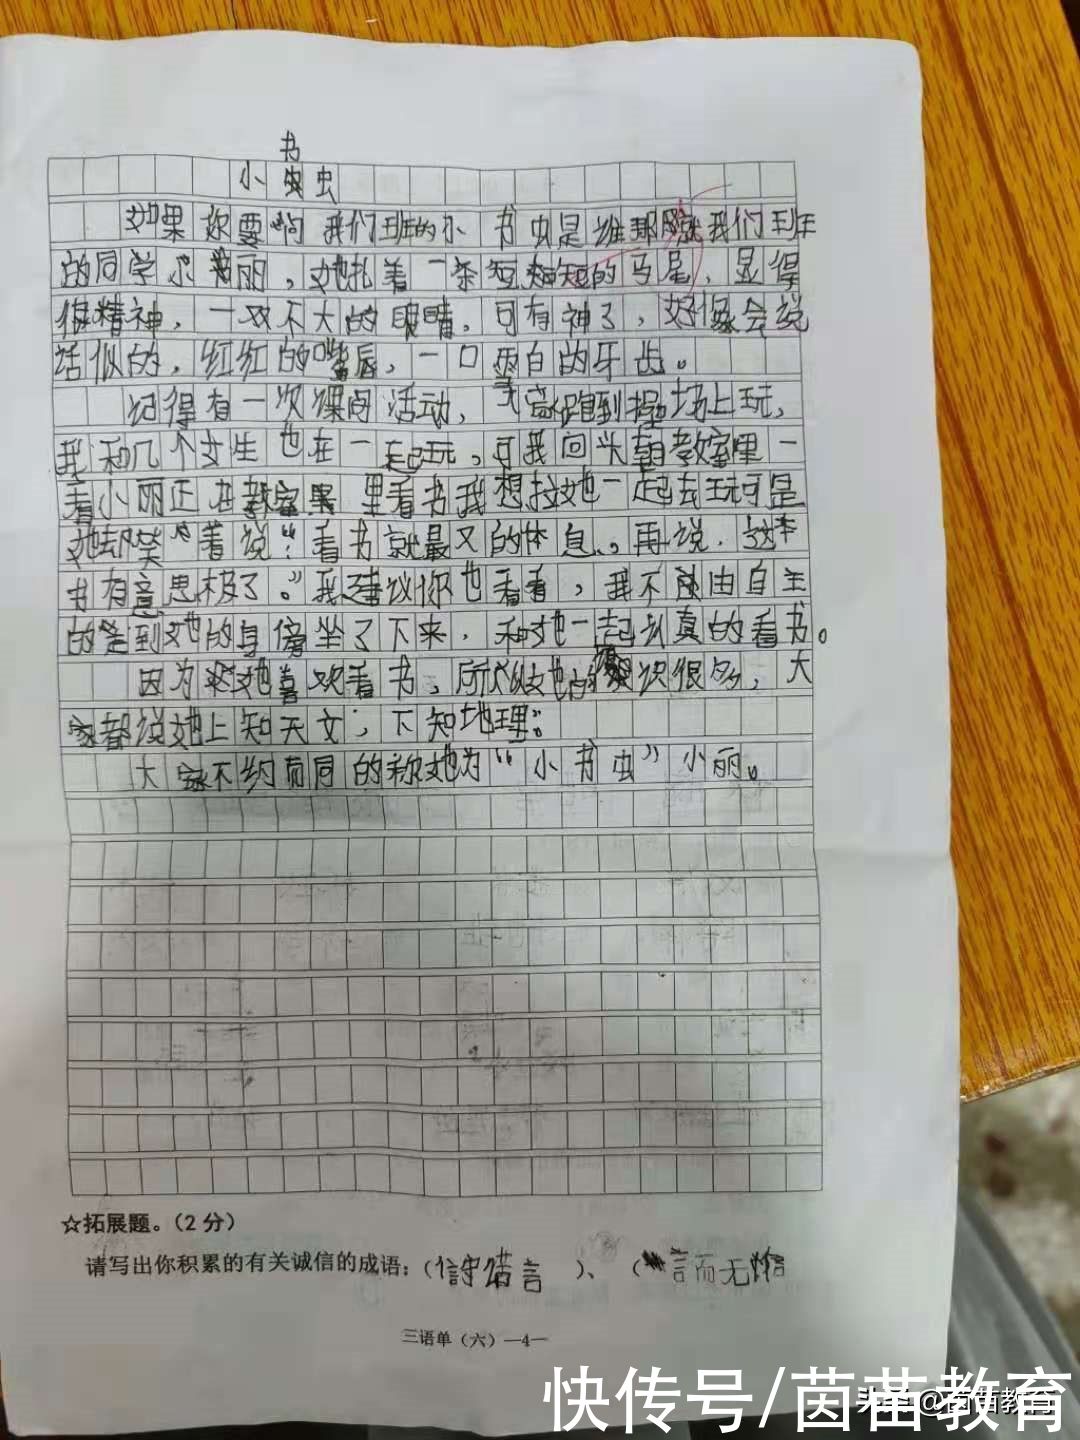 小书虫
如果你要问我们班的小书虫是谁那就我们班
的同学小丽，她扎着一条短短的马尾，显得
很精神，一双不大的眼睛。可有神了，好像会说
话似的，红红的嘴唇，一口雪白的牙齿。
记得有一次课间活动，大家跑到操场上玩，
我和几个女生也在一起玩，可我回头朝教室里一
看小丽正在教室里看书我想拉她一起去玩可是
她却笑着说：“看书就是最好的休息，再说，这本
书有意思极了。”我建议你也看看，我不由自主
的坐到她的身旁坐了下来，和她一起认真的看书。
因为她喜欢看书，所以她的知识很多，大
家都说她上知天文，下知地理。
大家不约而同的称她为“小书虫”小丽。
☆拓展题。（2分）
请写出你积累的有关诚信的成语：（信守诺言）、（言而无信
三语单（六）—4—
快传号/茵苗教育
头条@茵苗教育